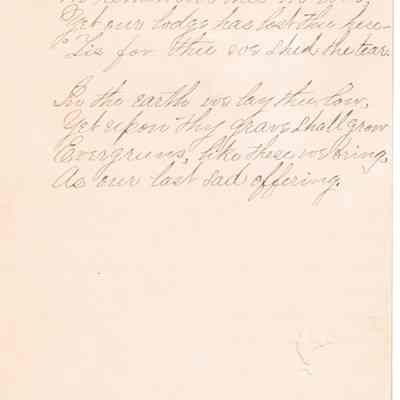 Yet our lodge has lost thee here
'Tis for thee we shed the tear.
In the earth we lay thee low,
Yet upon thy grave shall grow
Evergreens, like these we bring,
As our last sad offering.